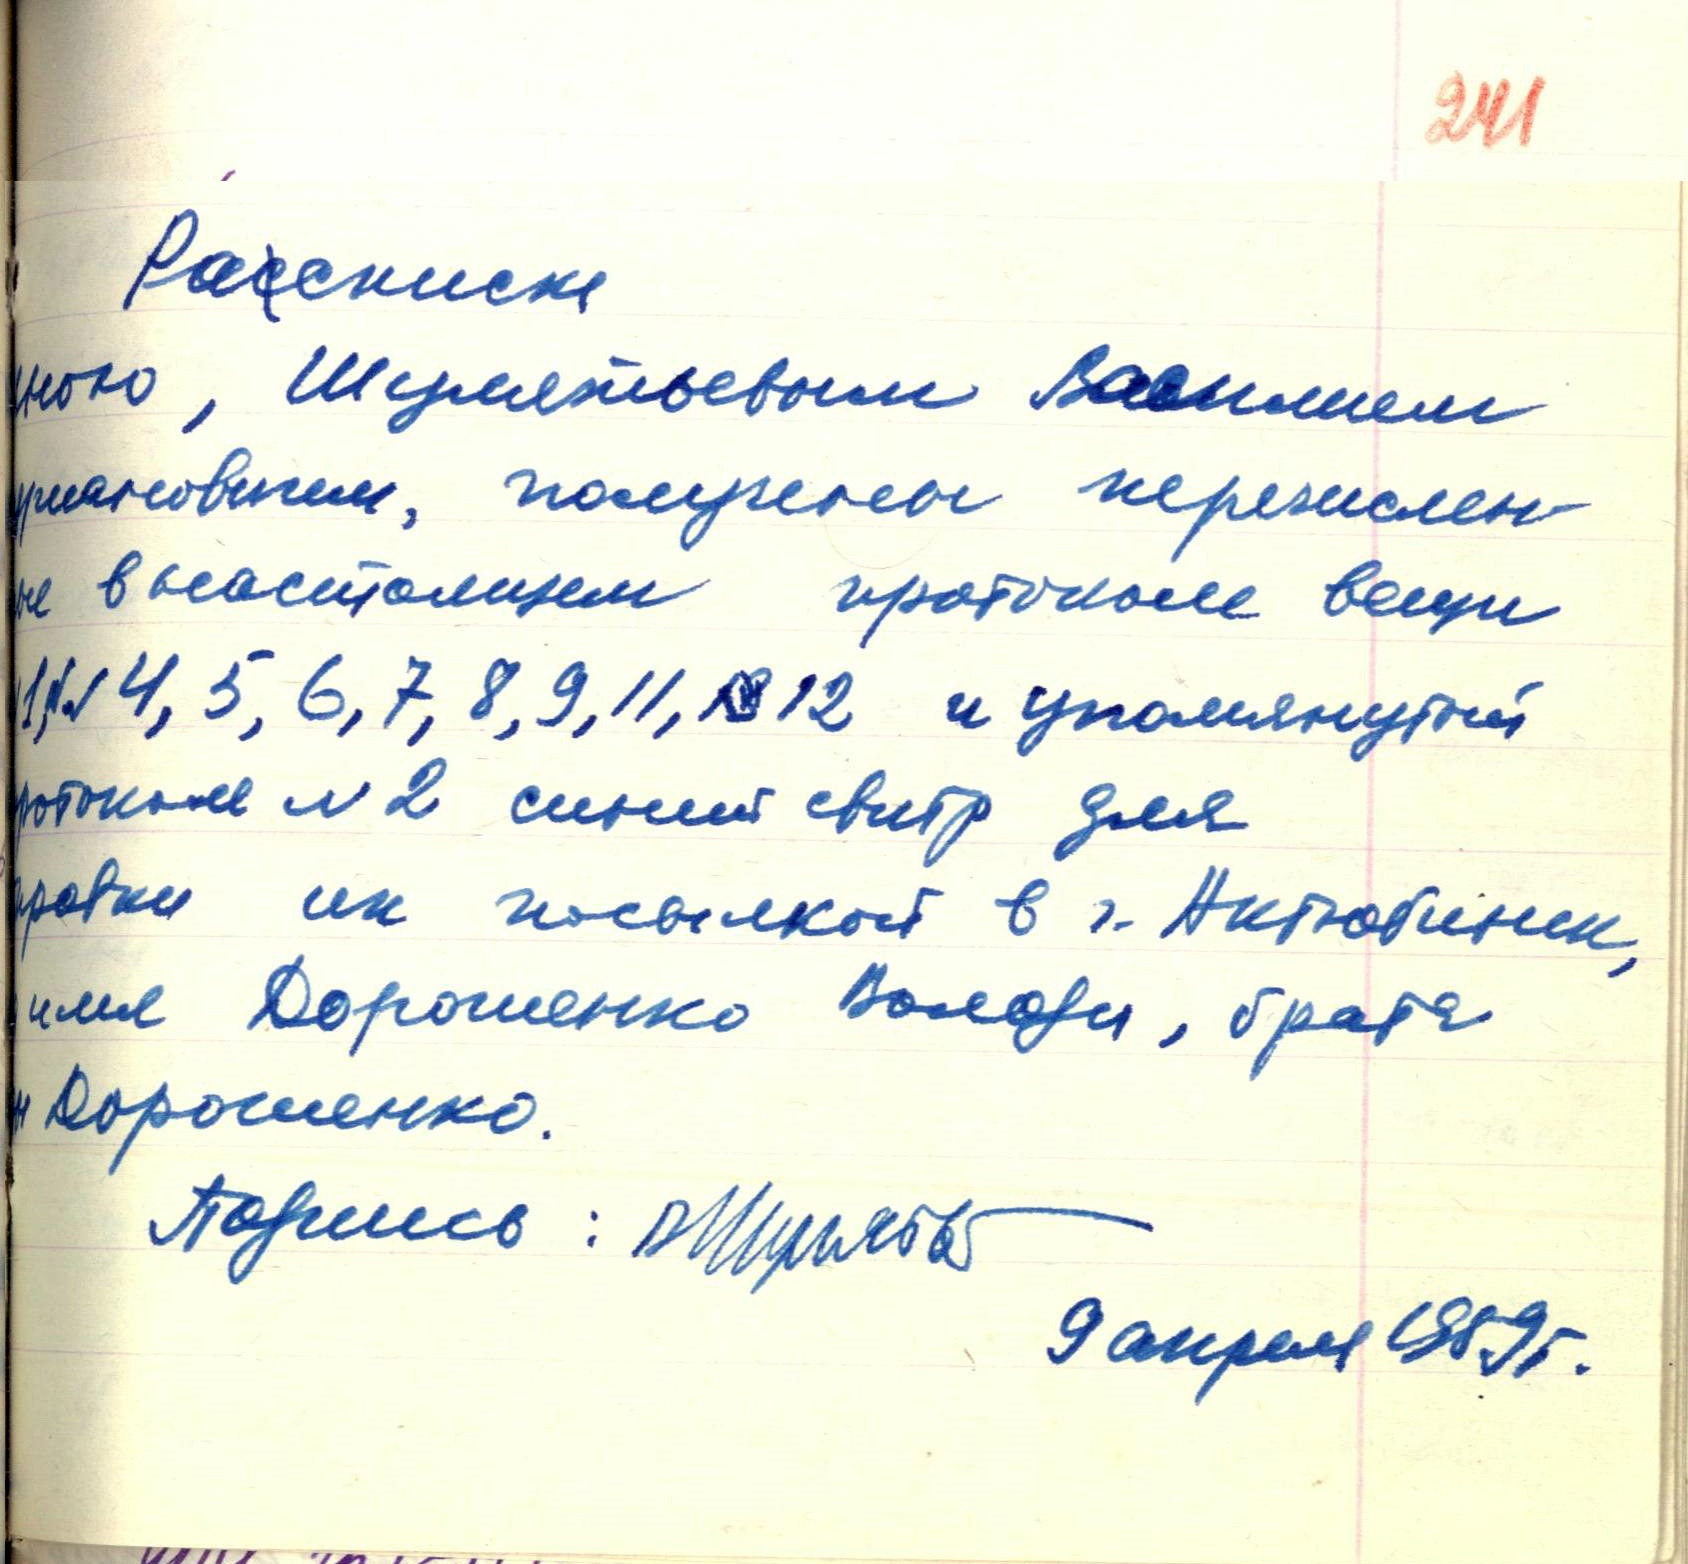 241
Расписка
мною, Шулятьевым Василием
рмановичем, получены перечислен-
ые в настоящем протоколе вещи
1, № 4, 5, 6, 7, 8, 9, 11, 12 и упомянутый
ротоколе № 2 синий свитр для
правки их посылкой в г. Актюбинск,
имя Дорошенко Володи, брата
Дорошенко.
Подпись: ВШулятьев
9 апреля 1959 г.